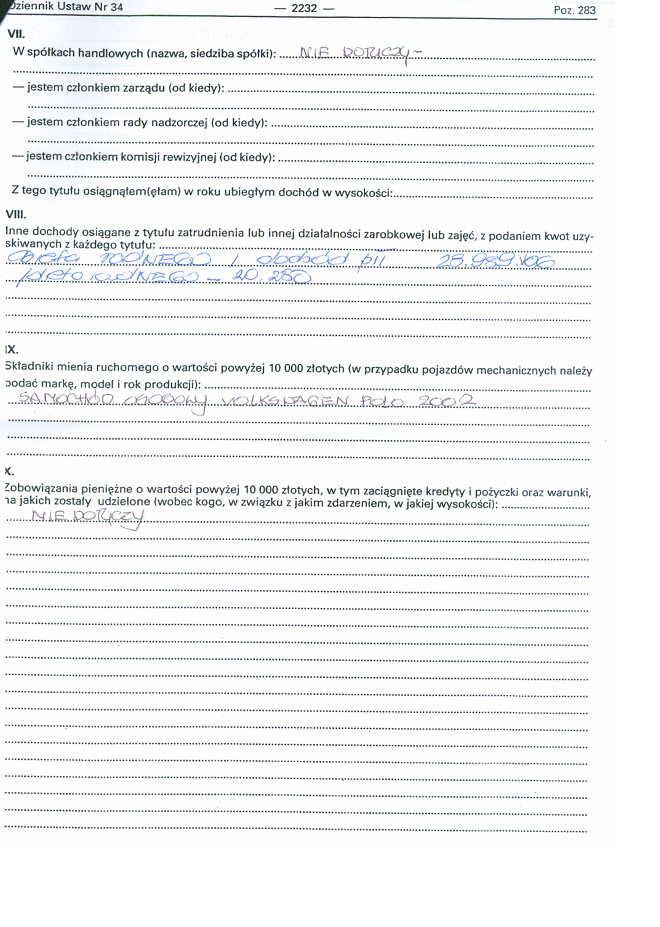 Dziennik Ustaw Nr 34 — 2232 — Poz. 283
VII.
W spółkach handlowych (nazwa, siedziba spółki): NIE DOTYCZY –
— jestem członkiem zarządu (od kiedy):
— jestem członkiem rady nadzorczej (od kiedy):
— jestem członkiem komisji rewizyjnej (od kiedy):
Z tego tytułu osiągnąłem(ęłam) w roku ubiegłym dochód w wysokości:
VIII.
Inne dochody osiągane z tytułu zatrudnienia lub innej działalności zarobkowej lub zajęć, z podaniem kwot uzy-
skiwanych z każdego tytułu:
dieta RADNEGO i
– 20.280
IX.
Składniki mienia ruchomego o wartości powyżej 10 000 złotych (w przypadku pojazdów mechanicznych należy
podać markę, model i rok produkcji):
SAMOCHÓD OSOBOWY VOLKSWAGEN POLO 2002
X.
Zobowiązania pieniężne o wartości powyżej 10 000 złotych, w tym zaciągnięte kredyty i pożyczki oraz warunki,
na jakich zostały udzielone (wobec kogo, w związku z jakim zdarzeniem, w jakiej wysokości):
NIE DOTYCZY